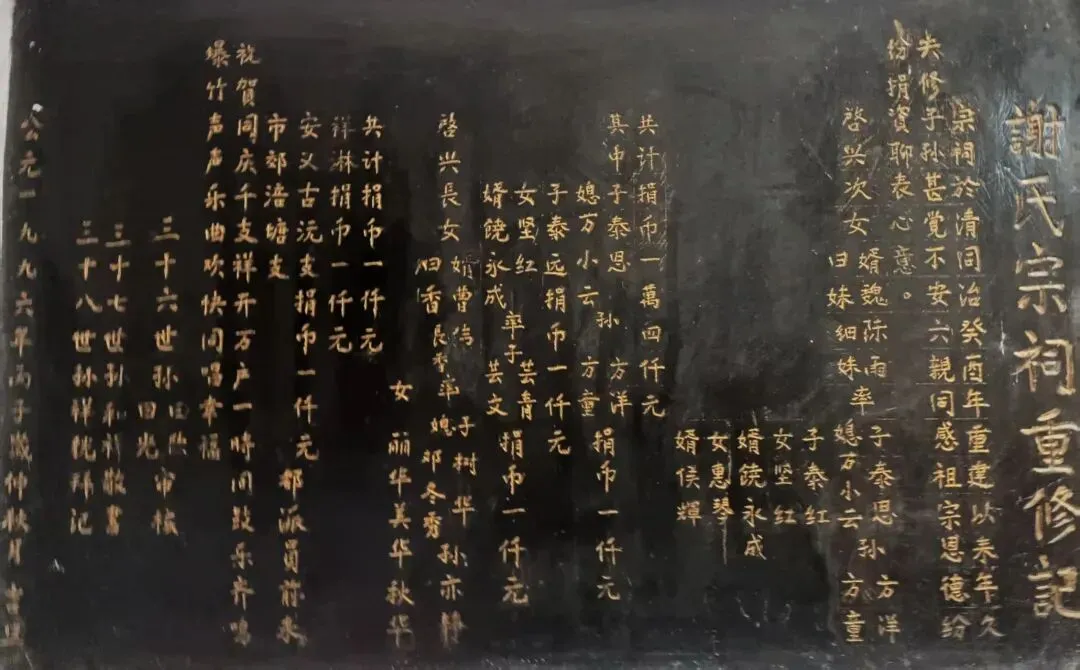 謝氏宗祠重修记
宗祠於清同治癸酉年重建以来年久
失修子孙甚觉不安六親同感祖宗恩德纷
纷捐資聊表心意。
啓兴次女归妹细妹率
婿魏际雨
子泰思孙方洋
媳万小云方童
子泰红
女坚红
婿饶永成
女惠琴
婿侯輝
共计捐币一萬四仟元
其中子泰思孙方洋捐币一仟元
媳万小云方童
子泰远捐币一仟元
女坚红率子芸青捐币一仟元
婿饒永成芸文
啓兴長女
婿曹信
旧香良秀率
子树华孙亦
媳邓冬秀
女丽华美华秋华
共计捐币一仟元
祥淋捐币一仟元
安义古沅支捐币一仟元
市郊涪塘支都派員前来
祝賀同庆千支祥开万户一時同鼓乐齐鳴
爆竹声声乐曲欢快同唱幸福
三十六世孙田审核
田光
三十七世孙和科敬書
三十八世孙祥拜记
公元一九九六年丙子歲仲秋月